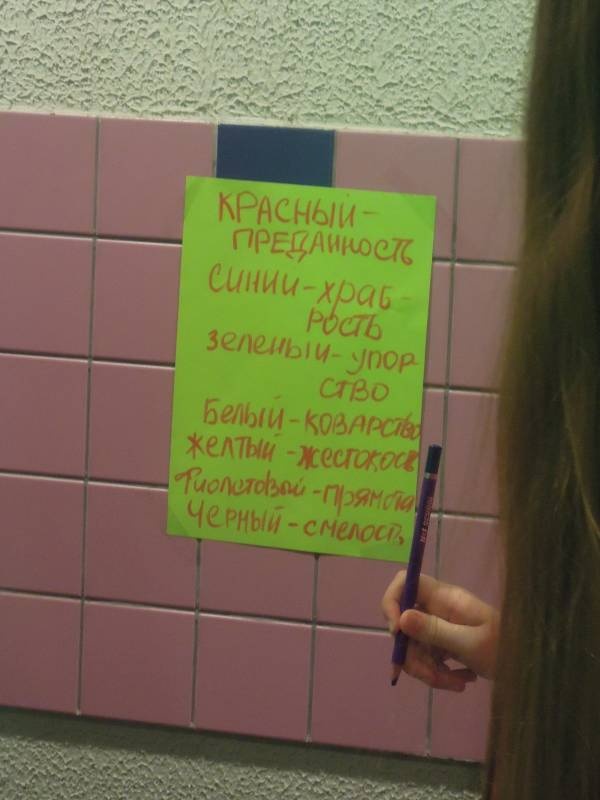 КРАСНЫЙ-
ПРЕДАННОСТЬ
СИНИЙ-ХРАБ-
РОСТЬ
зеленый-упор
СТВО
Белый-коварство
Желтый-жестокость
Фиолетовый-прямота
Черный-смелость